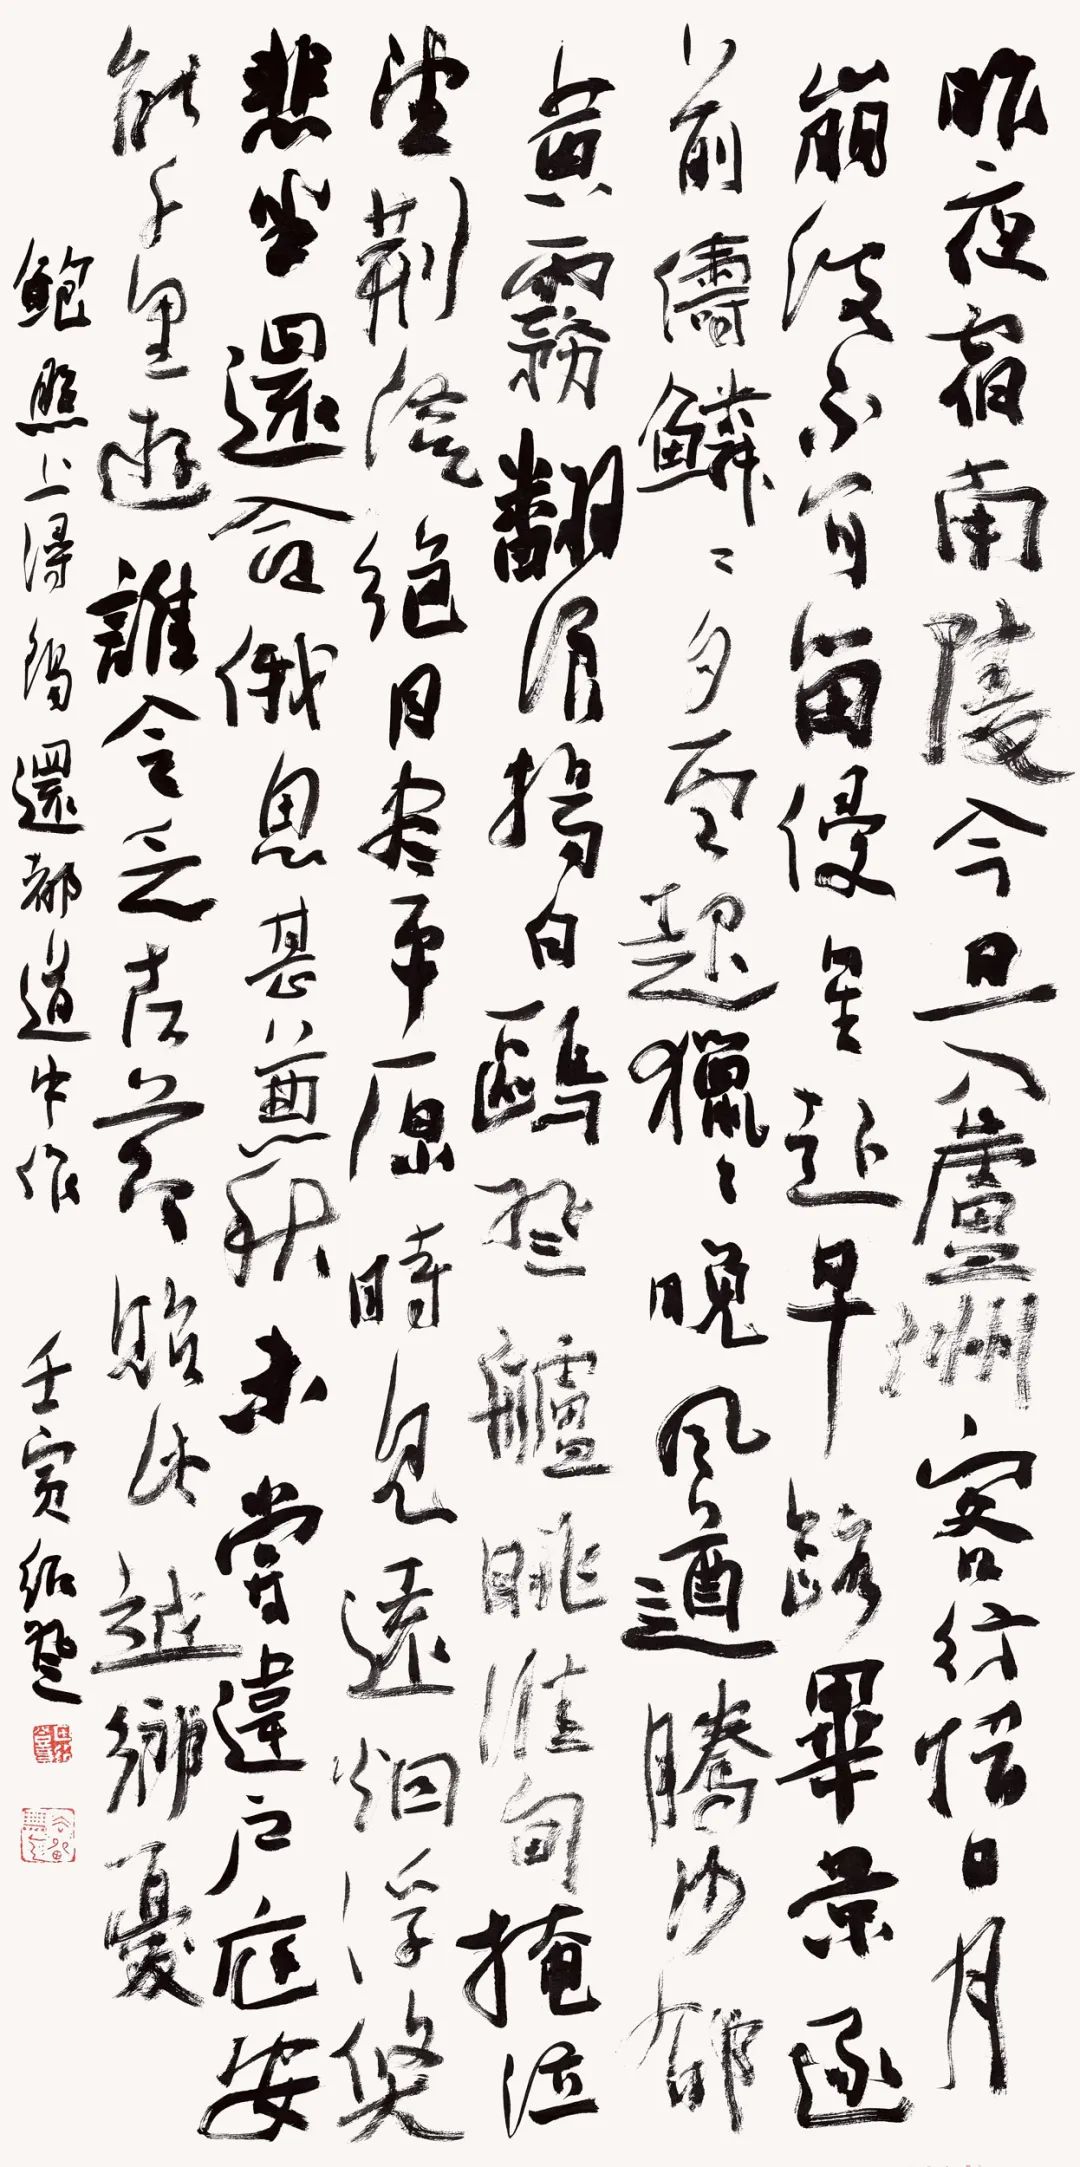 昨夜宿南陵今旦入蘆洲客行惜日月
崩波不可留侵星赴早路畢景逐
前儔鱗〻夕雲起獵〻晚風遒騰沙郁
黃霧翻浪揚白鷗登艫眺淮甸掩泣
望荊流絕目盡平原時見遠烟浮倏
悲坐還合俄思甚兼秋未嘗違戶庭安
能千里遊誰令乏古節貽此越鄉憂
鮑照上潯陽還都道中作 壬寅紹